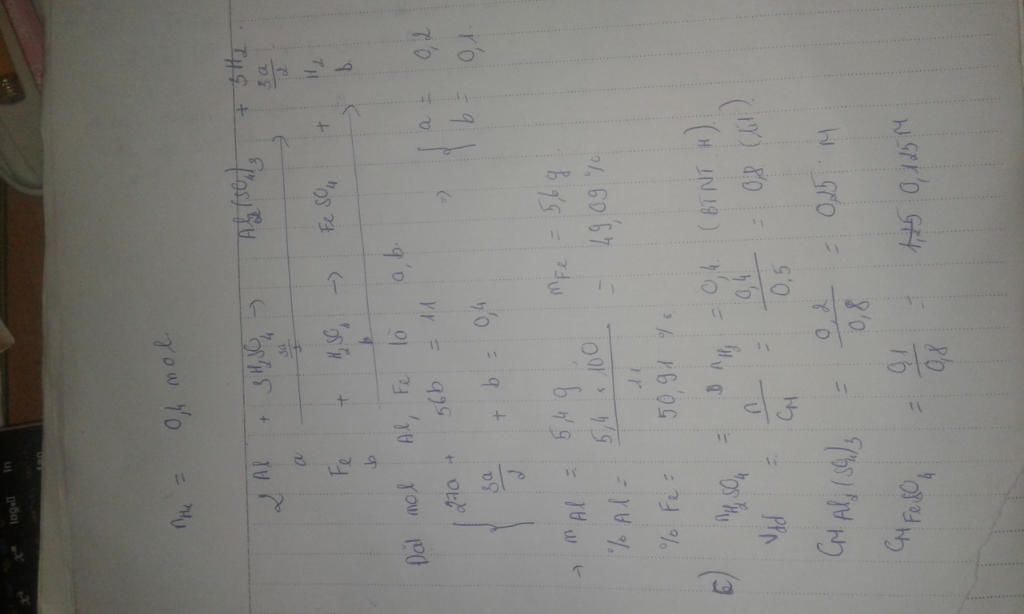 nH2 = 0,4 mol.
2Al + 3H2SO4 → Al2(SO4)3 + 3H2.
a 3a/2 3a/2
Fe + H2SO4 → FeSO4 + H2
b b b
Đặt mol Al, Fe là a, b.
{ 27a + 56b = 11
{ 3a/2 + b = 0,4
=> { a = 0,2
{ b = 0,1.
→ mAl = 5,4 g mFe = 5,6 g
% Al = 5,4 . 100 / 11 = 49,09 %
% Fe = 50,91 %
b) nH2SO4 = nH2 = 0,4 (BTNT H)
Vdd = n/CM = 0,4/0,5 = 0,8 (lít).
CM Al2(SO4)3 = 0,2/0,8 = 0,25 M
CM FeSO4 = 0,1/0,8 = 1,25 0,125 M